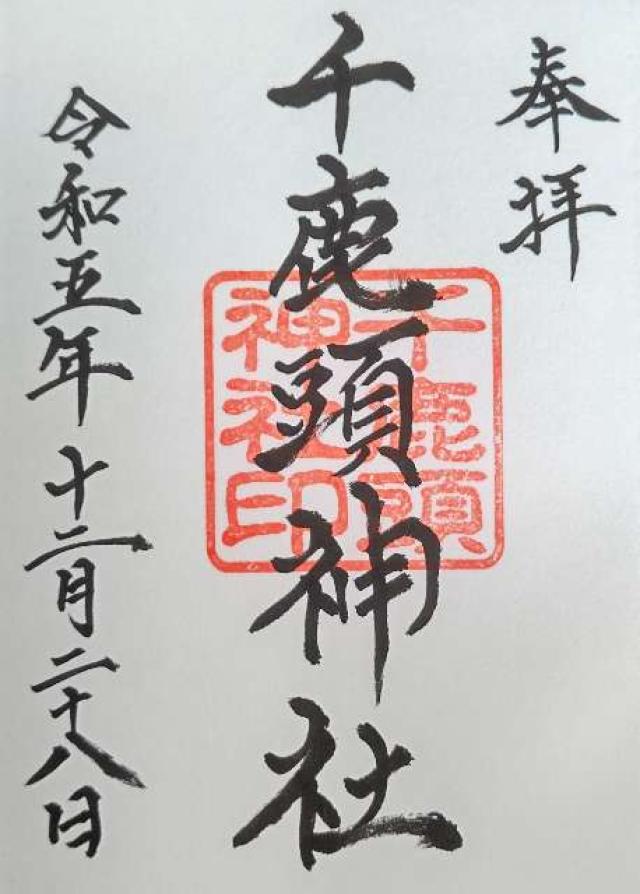 奉拝
千鹿頭神社
千鹿頭
神社印
令和五年十二月二十八日